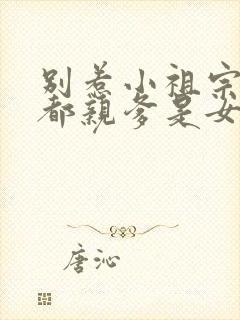 别惹小祖宗
都亲爹是女
唐沁